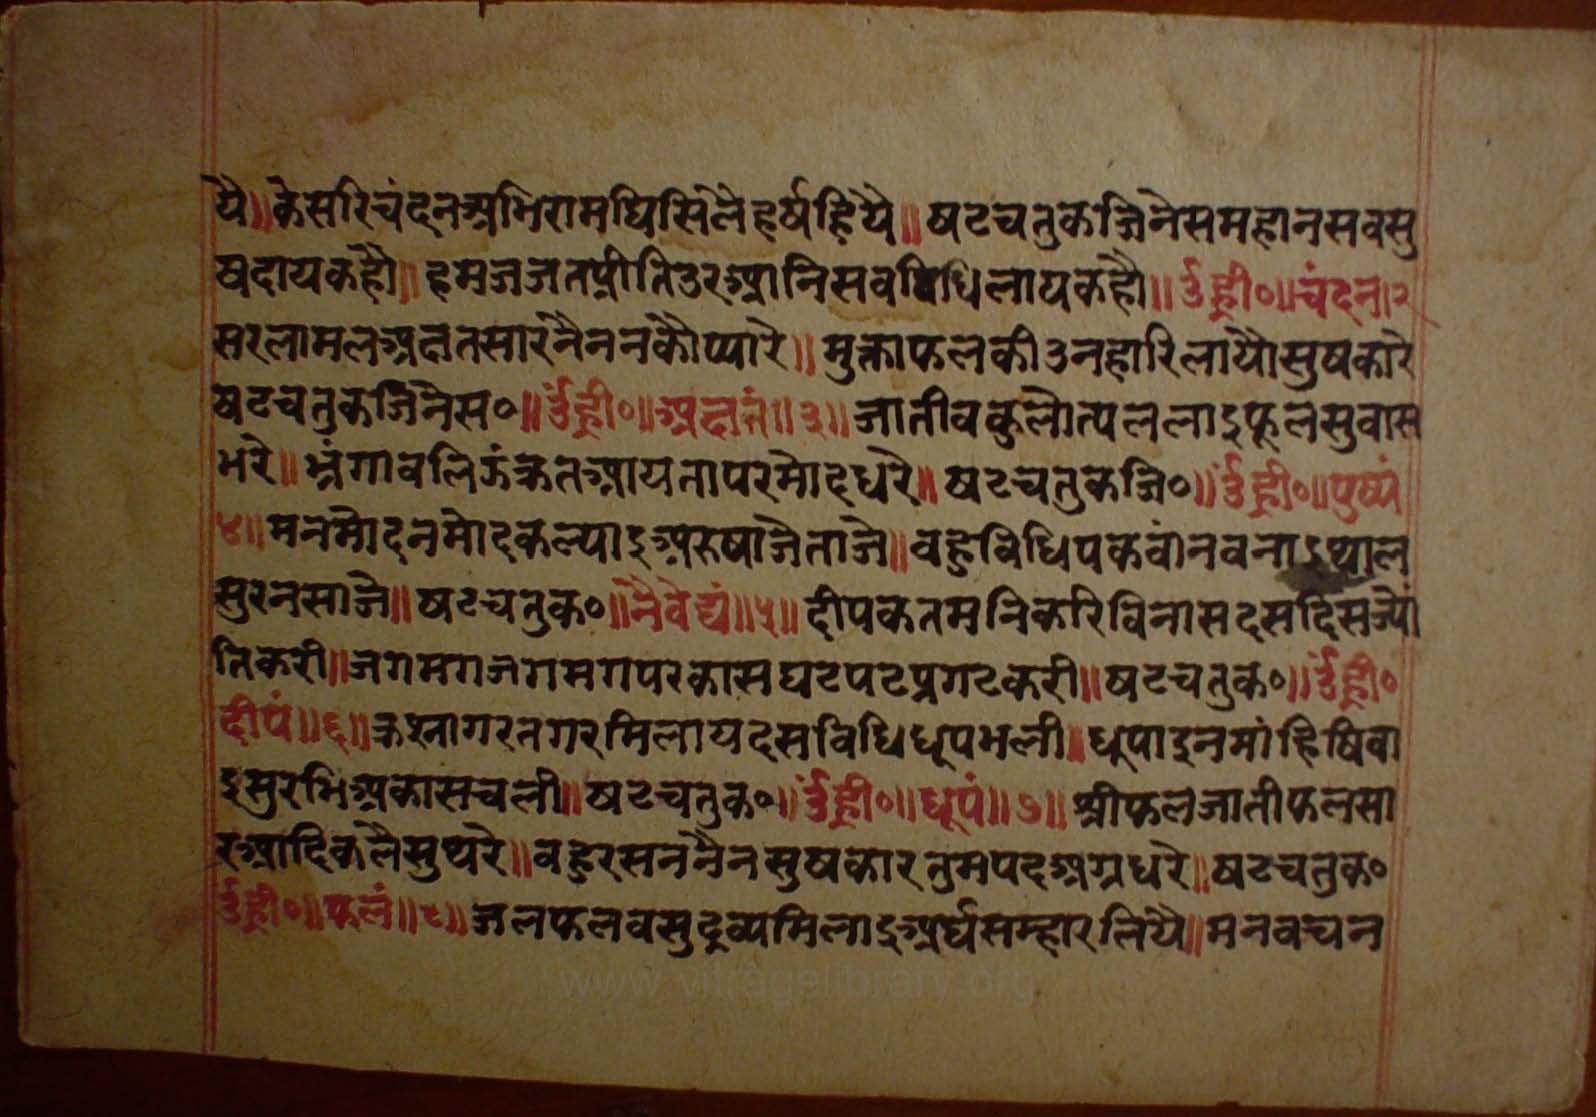 यै॥ केसरिचंदनअभिरामघिसिलैहर्षहियै॥ षटचतुकजिनेसमहानसवसु
षदायकहौ॥ हमजजतप्रीतिउरआनिसवविधिलायकहौ॥ ॐह्री०॥ चंदन।२
सरलामलअक्षतसारनैननकौप्यारे॥ मुक्ताफलकीउनहारिलायौसुषकारे
षटचतुकजिनैस०॥ ॐह्री०॥ अक्षतं॥३॥ जातीवकुलोत्पललाइफूलसुवास
भरे॥ भ्रंगावलिऊंक्रतआयतापरमोदधरै॥ षटचतुकजि०॥ ॐह्री०॥ पुष्पं
४॥ मनमोदनमोदकल्याइअरुषाजैताजै॥ वहुविधिपकवांनवनाइथाल
सुरनसाजै॥ षटचतुक०॥ नैवेद्यं॥५॥ दीपकतमनिकरिविनासदसदिसज्यो
तिकरी॥ जगमगजगमगपरकासघटपटप्रगटकरी॥ षटचतुक०॥ ॐह्री०
दीपं॥६॥ क्रश्नागरतगरमिलायदसविधिधूपभली॥ धूपाइनमांहिषिवा
इसुरभिअकासचली॥ षटचतुक०॥ ॐह्री०॥ धूपं॥७॥ श्रीफलजातीफलसा
रआदिकलैसुथरे॥ वहुरसननैनसुषकारतुमपदअग्रधरे॥ षटचतुक०
ॐह्री०॥ फलं॥८॥ जलफलवसुद्रव्यमिलाइअर्घसम्हारलियै॥ मनवचन
www.vitragelibrary.org